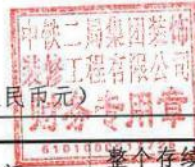 中铁二局集团装饰
装修工程有限公司
民币元)
财务专用章
6101000
整个存续